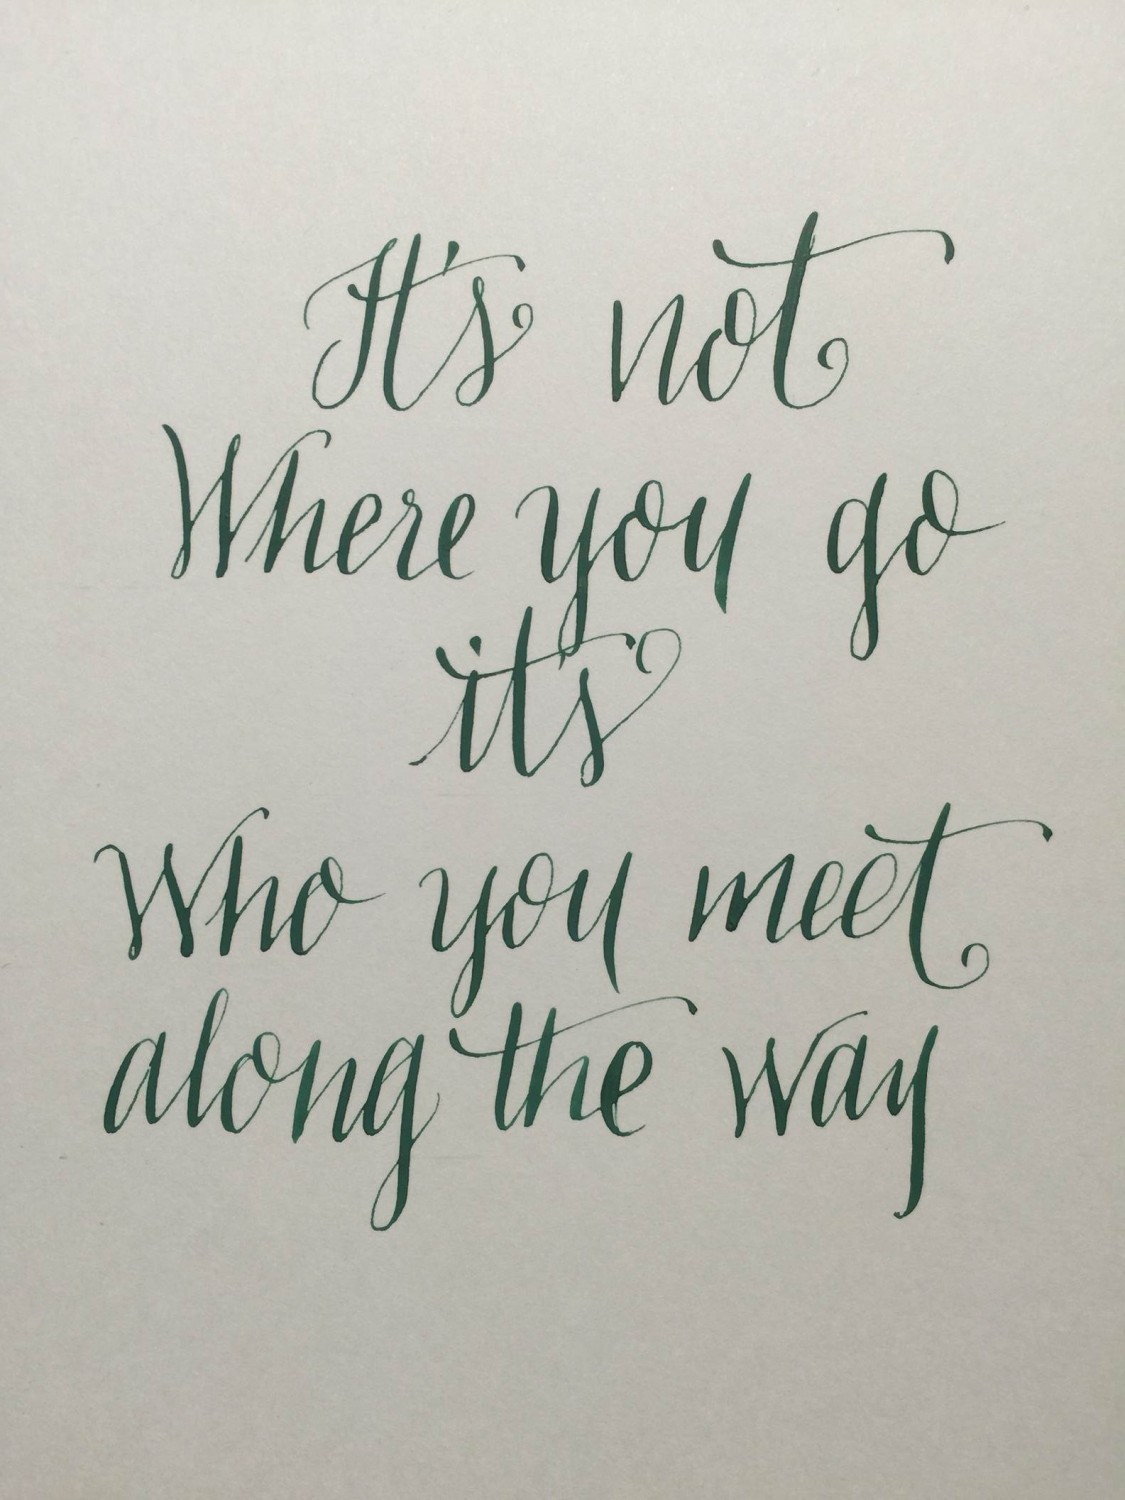 It's not
Where you go
it's
Who you meet
along the way